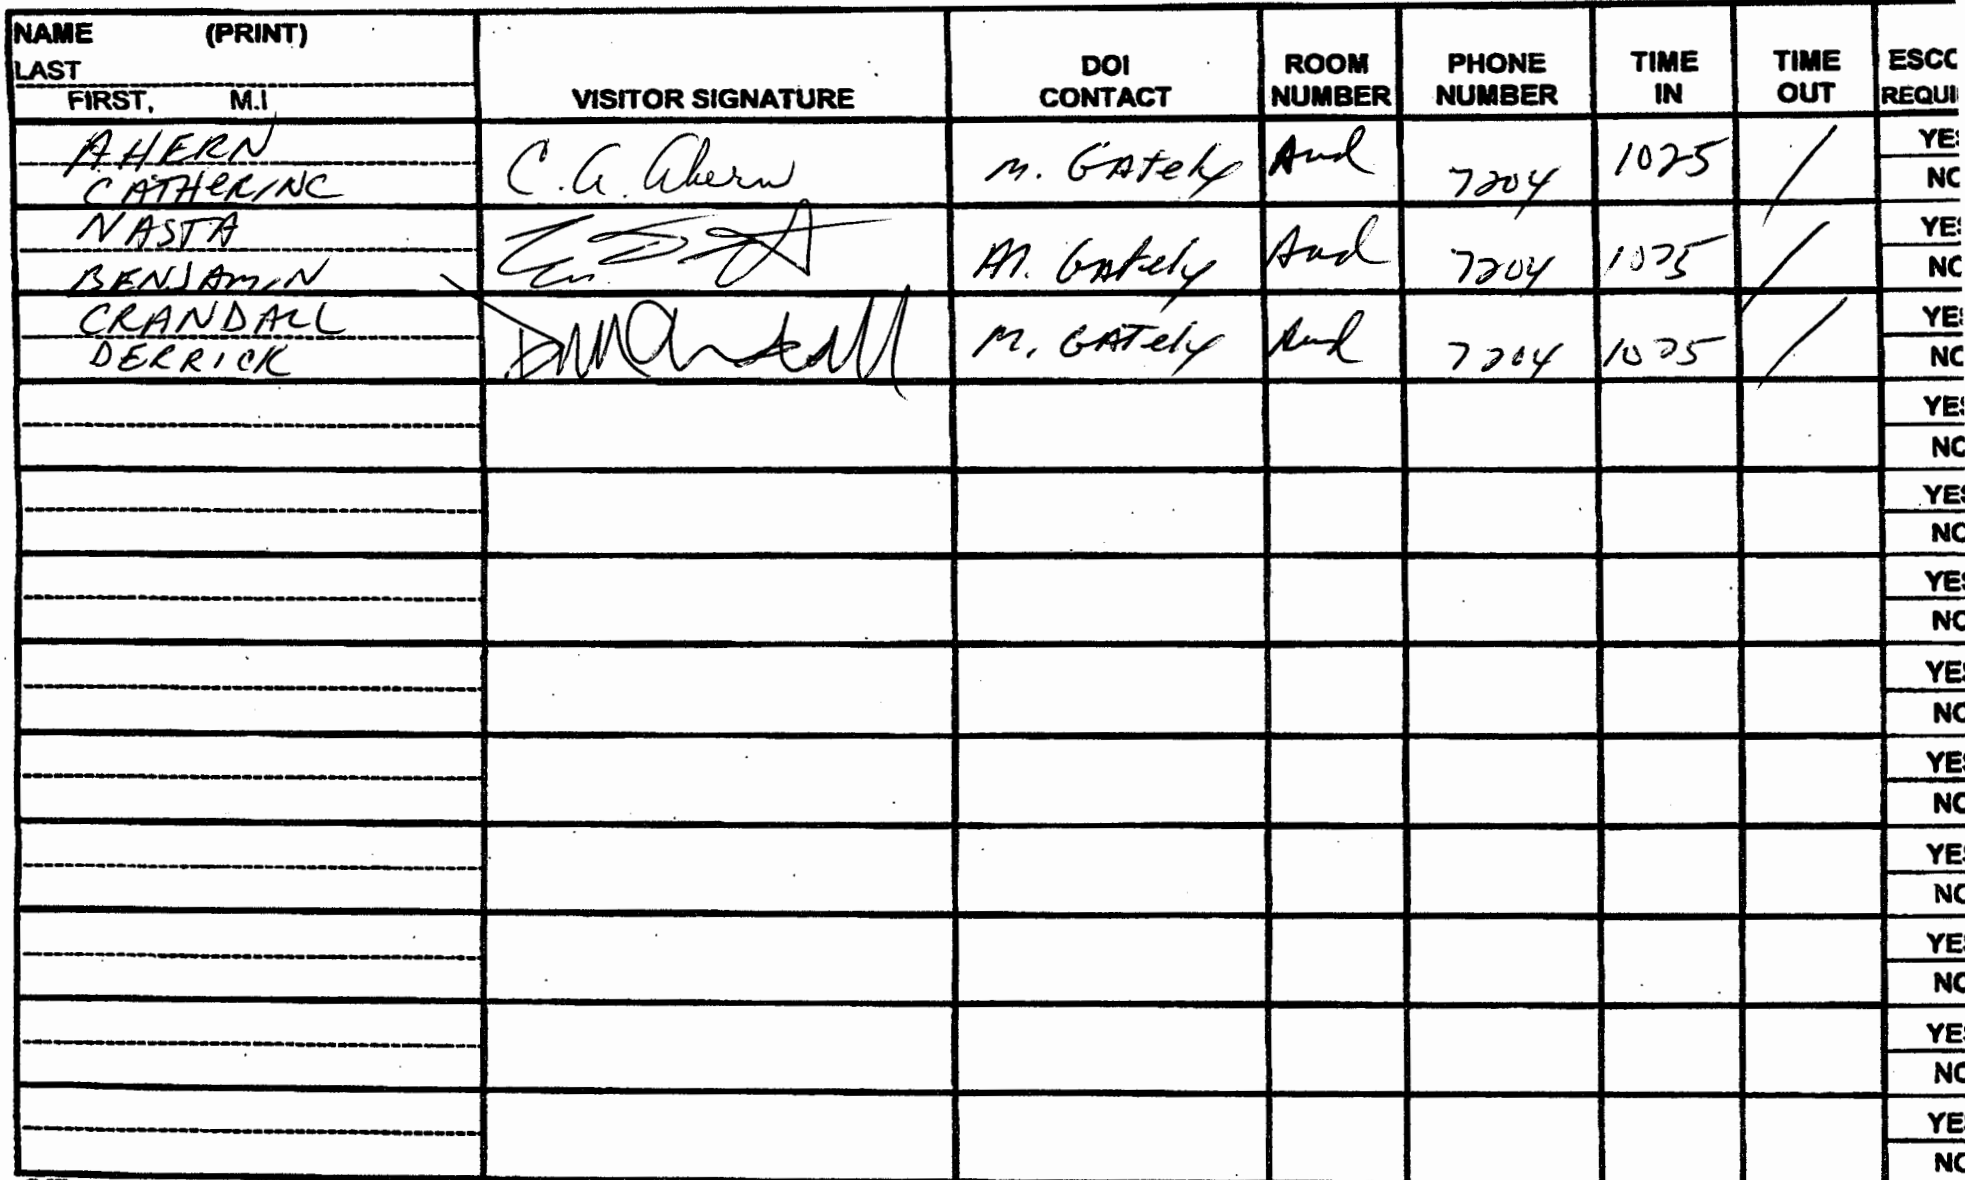 NAME (PRINT)
LAST
FIRST, M.I
VISITOR SIGNATURE
DOI
CONTACT
ROOM
NUMBER
PHONE
NUMBER
TIME
IN
TIME
OUT
ESCO
REQUI
AHERN
CATHERINE
C. A. Ahern
M. GATely
Aud
7204
1025
/
YES
NO
NASTA
BENJAMIN
M. GAtely
Aud
7204
1025
/
YES
NO
CRANDALL
DERRICK
M. GATely
Aud
7204
1025
/
YES
NO
YES
NO
YES
NO
YES
NO
YES
NO
YES
NO
YES
NO
YES
NO
YES
NO
YES
NO